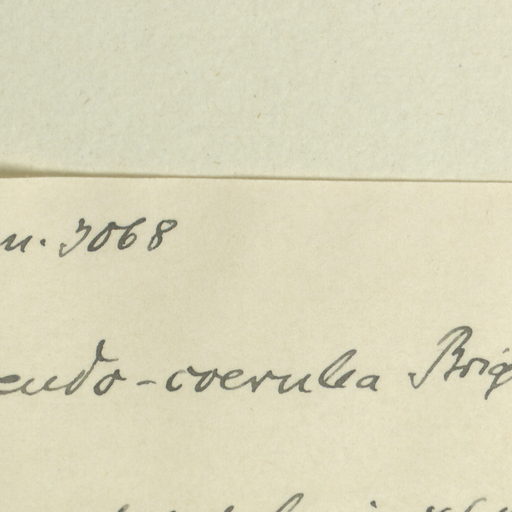 n. 3068
eudo-coerulea Briq